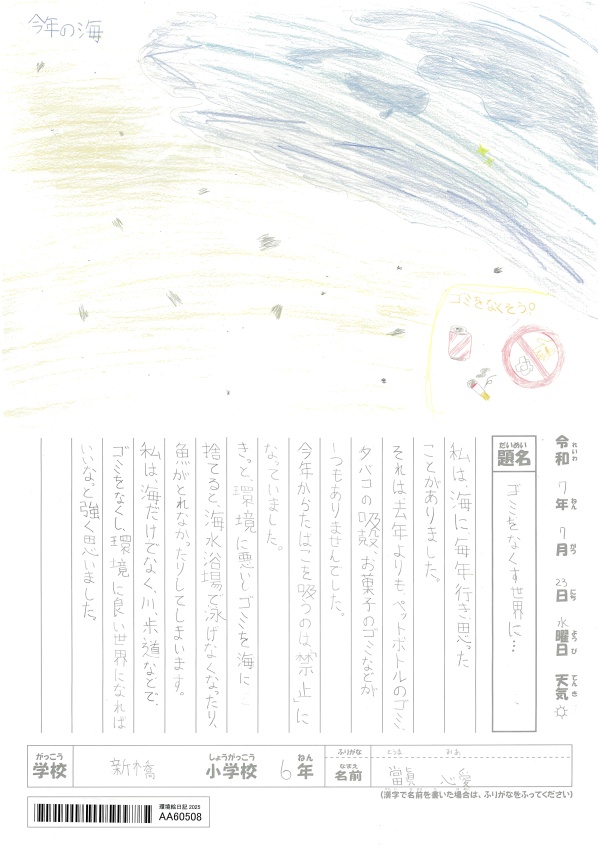 今年の海
ゴミをなくそう。
令和7年7月23日水曜日天気
れいわ ねん がつ にち ようび てんき
だいめい
題名 ゴミをなくす世界に…
私は、海に、毎年行き、思った
ことがありました。
それは去年よりも、ペットボトルのゴミ、
タバコの吸殻、お菓子のゴミなどが
1つもありませんでした。
今年からたばこを吸うのは、「禁止」に
なっていました。
きっと、環境に悪いゴミを海に
捨てると、海水浴場で泳げなくなったり、
魚がとれなかったりしてしまいます。
私は、海だけでなく、川、歩道などで、
ゴミをなくし、環境に良い世界になれば
いいなっと強く思いました。
がっこう しょうがっこう ねん
学校 新橋 小学校 6年
ふりがな
なまえ
名前 當眞 心愛
(漢字で名前を書いた場合は、ふりがなをふってください)
環境絵日記 2025
AA60508